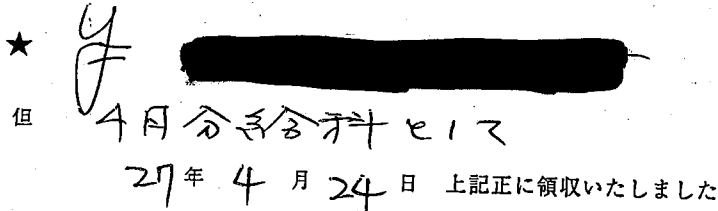 ★ ¥
但 4月分給料として
27年4月24日 上記正に領収いたしました